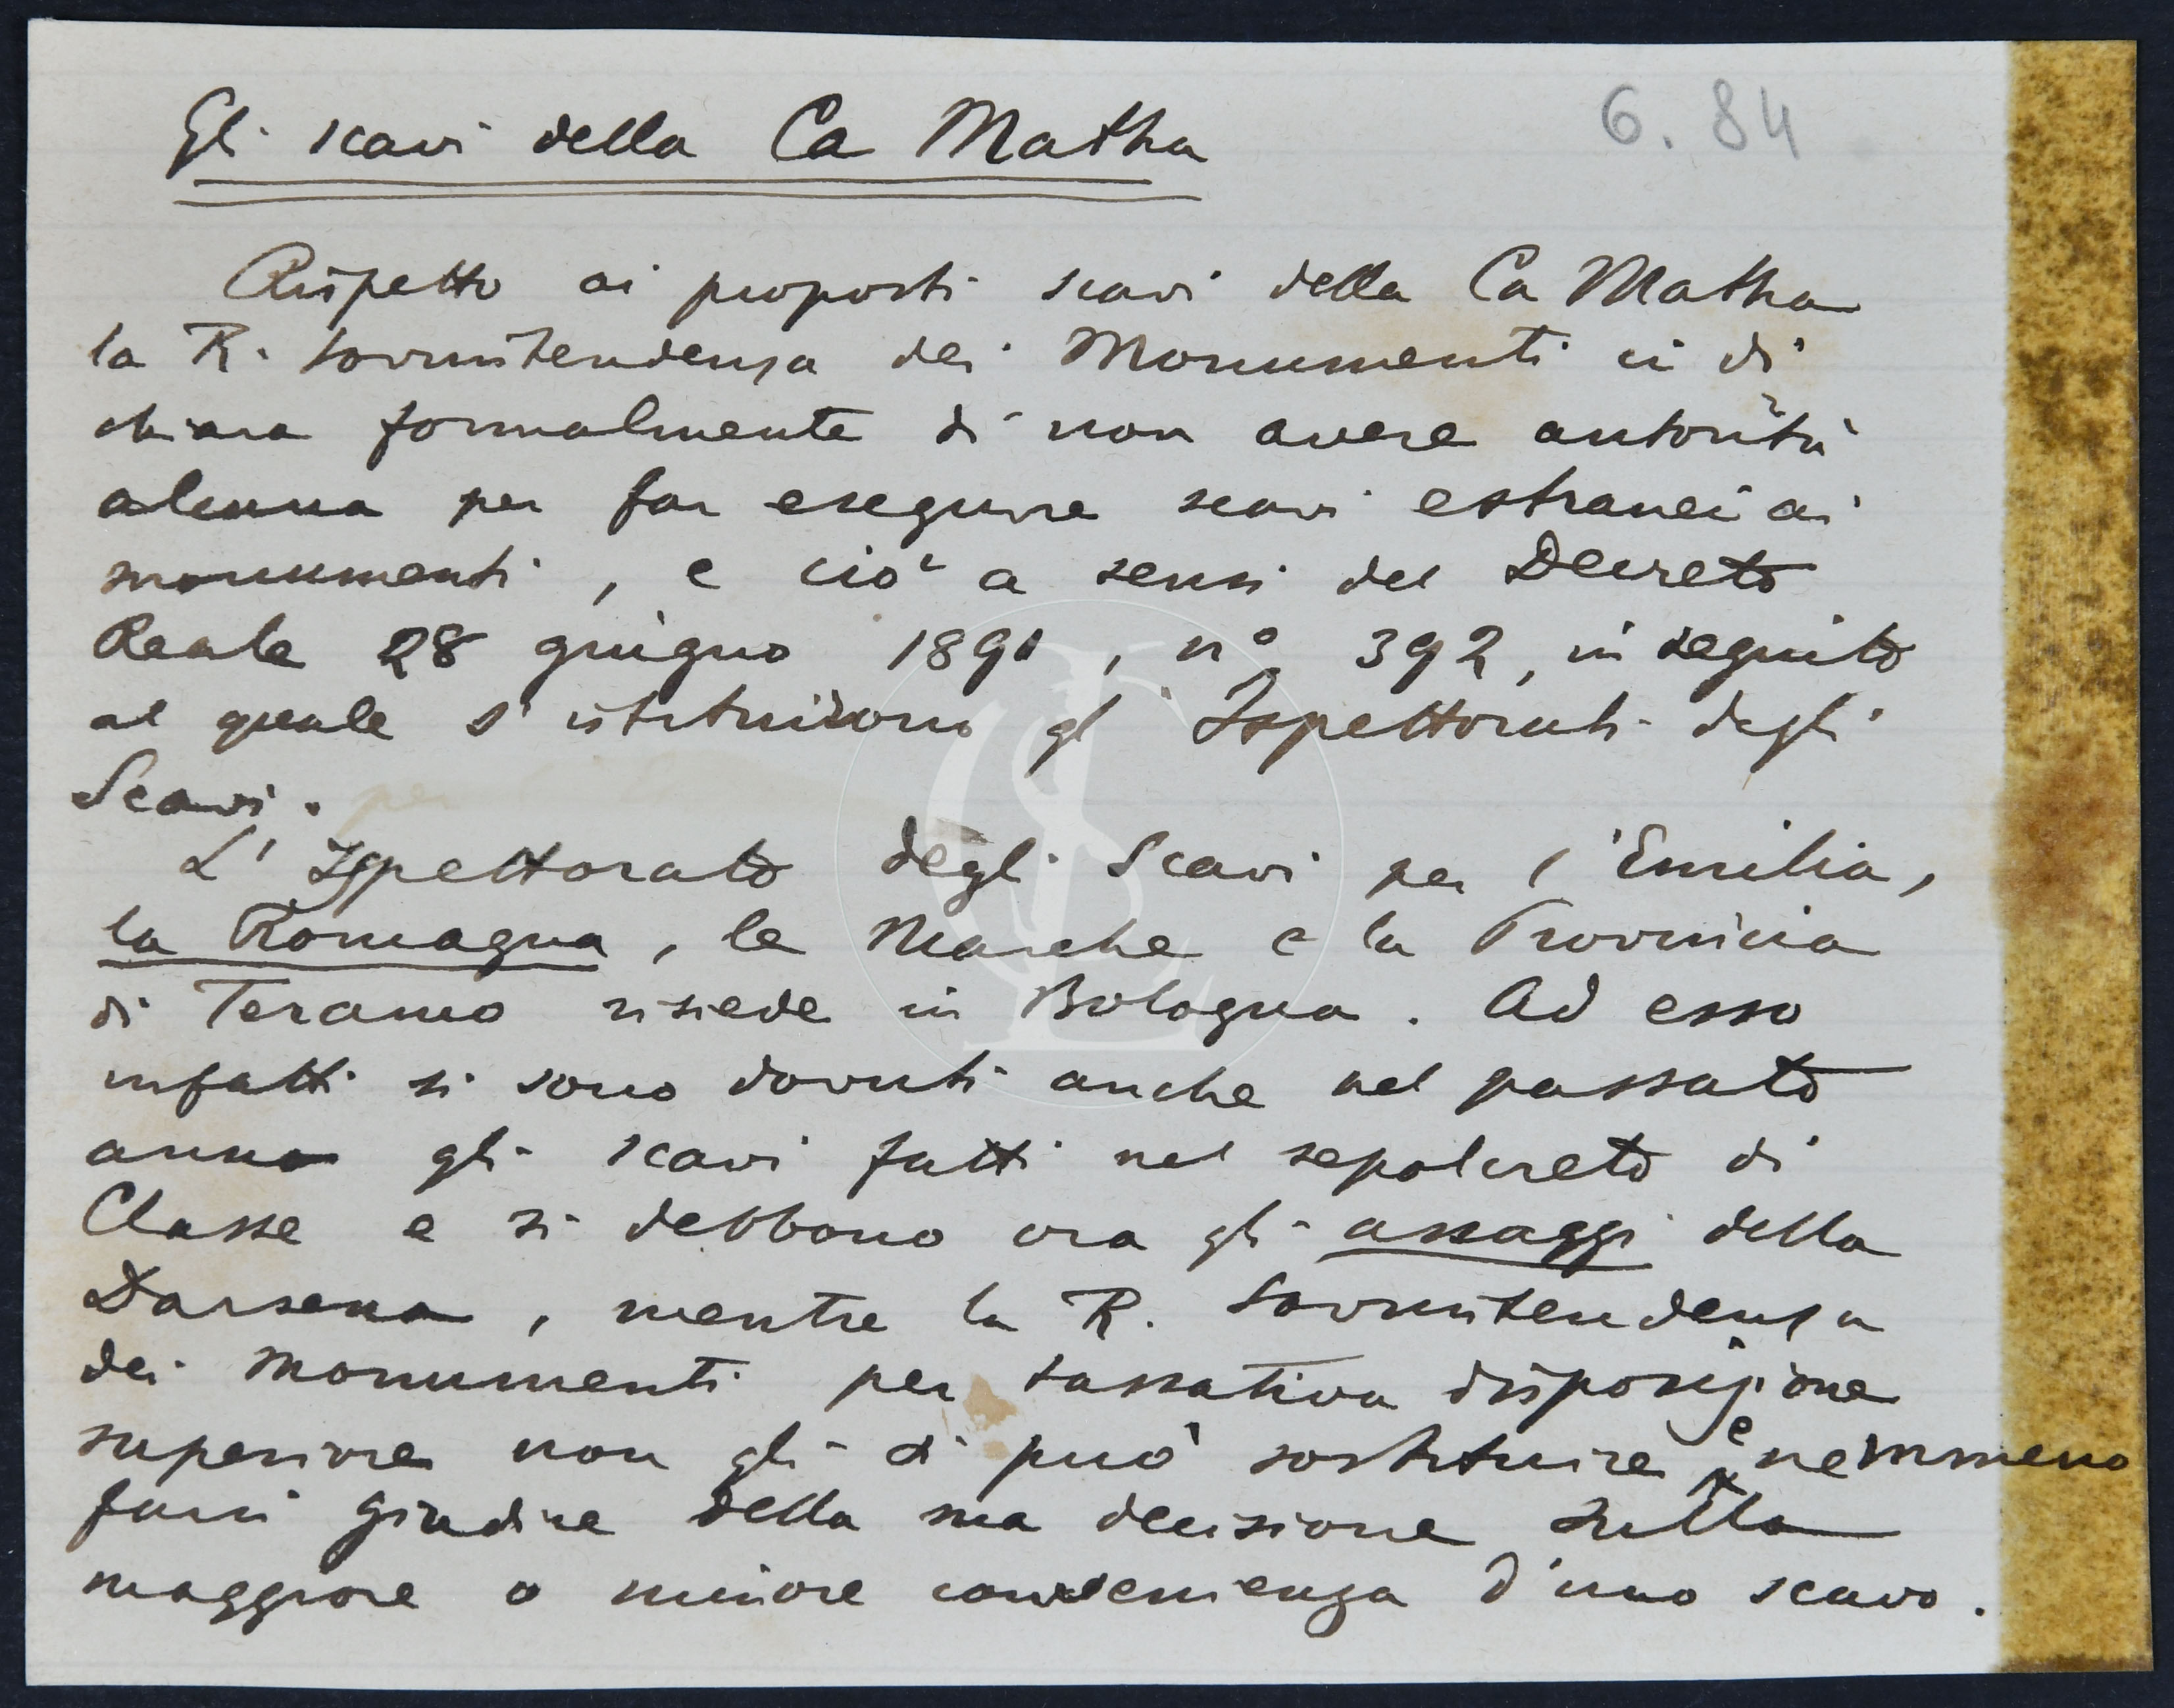 Gli scavi della Ca Matha
6. 84
Rispetto ai proposti scavi della Ca Matha
la R. Sovrintendenza dei Monumenti ci di
chiara formalmente di non avere autorità
alcuna per far eseguire scavi estranei ai
monumenti, e ciò a sensi del Decreto
Reale 28 giugno 1891, n° 392, in seguito
al quale s'istituirono gl'Ispettorati degli
Scavi.
L'Ispettorato degli Scavi per l'Emilia,
la Romagna, le Marche e la Provincia
di Teramo risiede in Bologna. Ad esso
infatti si sono dovuti anche nel passato
anno gli scavi fatti nel sepolcreto di
Classe e si debbono ora gli assaggi della
Darsena, mentre la R. Sovrintendenza
dei Monumenti per tassativa disposizione
superiore non gli si può sostituire e nemmeno
farsi giudice della sua decisione sulla
maggiore o minore convenienza d'uno scavo.